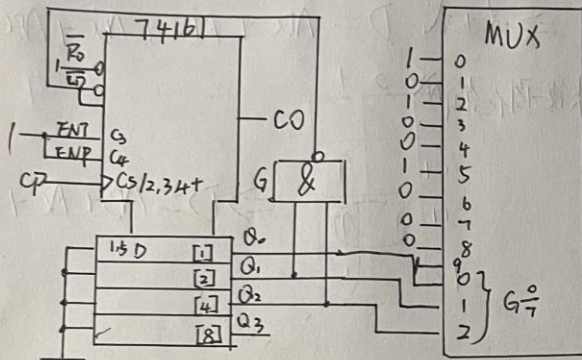 74161
MUX
R̅₀
1
L̅D̅
1 ENT C3
ENP C4
CP C5/2,3,4+
CO
G &
1,5D [1] Q₀
[2] Q₁
[4] Q₂
[8] Q₃
1 0
0 1
1 2
0 3
0 4
1 5
0 6
0 7
0 8
9
0
1
2
G 0/7